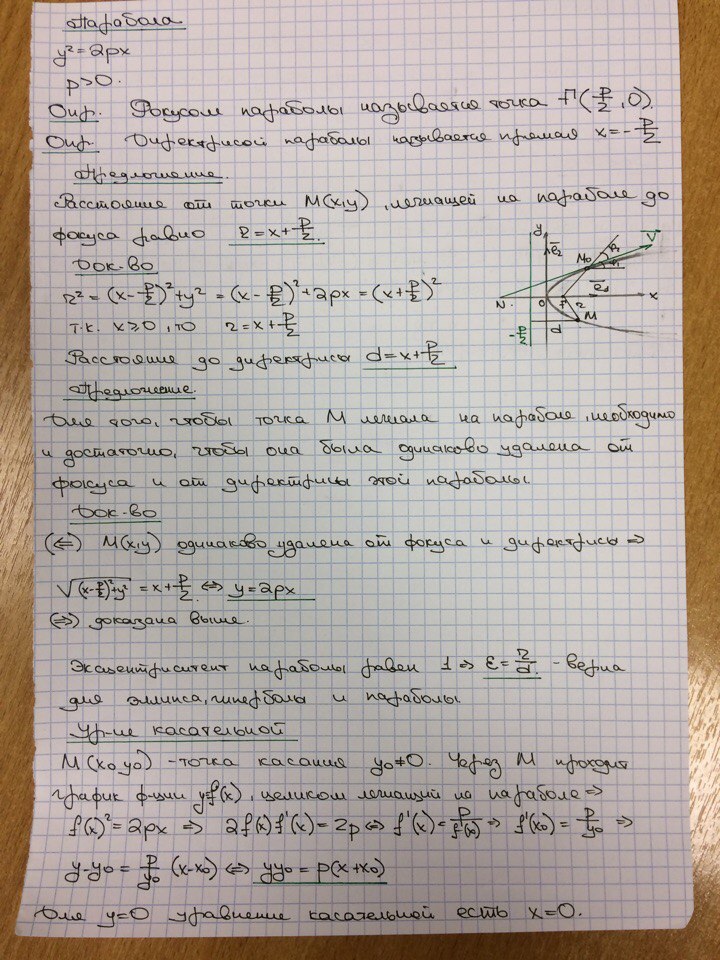 Парабола
y² = 2px
p > 0.
Опр. Фокусом параболы называется точка F(p/2, 0).
Опр. Директрисой параболы называется прямая x = -p/2
Предложение.
Расстояние от точки M(x,y), лежащей на параболе до
фокуса равно r = x + p/2.
Док-во
r² = (x - p/2)² + y² = (x - p/2)² + 2px = (x + p/2)²
т.к. x ≥ 0, то r = x + p/2
Расстояние до директрисы d = x + p/2
Предложение.
Для того, чтобы точка M лежала на параболе, необходимо
и достаточно, чтобы она была одинаково удалена от
фокуса и от директрисы этой параболы.
Док-во
(⇐) M(x,y) одинаково удалена от фокуса и директрисы ⇒
√((x - p/2)² + y²) = x + p/2 ⇔ y = 2px
(⇒) доказана выше.
Эксцентриситет параболы равен 1 ⇒ ε = r/d. - верна
для эллипса, гиперболы и параболы.
Ур-ие касательной
M(x₀ y₀) - точка касания y₀ ≠ 0. Через M проходит
график ф-ции y=f(x), целиком лежащий на параболе ⇒
f(x)² = 2px ⇒ 2f(x) f'(x) = 2p ⇔ f'(x) = p/f(x) ⇒ f'(x₀) = p/y₀ ⇒
y - y₀ = p/y₀ (x - x₀) ⇔ yy₀ = p(x + x₀)
Для y = 0 уравнение касательной есть x = 0.
y
e₂
M₀
V
N
0
F
r
e₁
x
-p/2
d
M